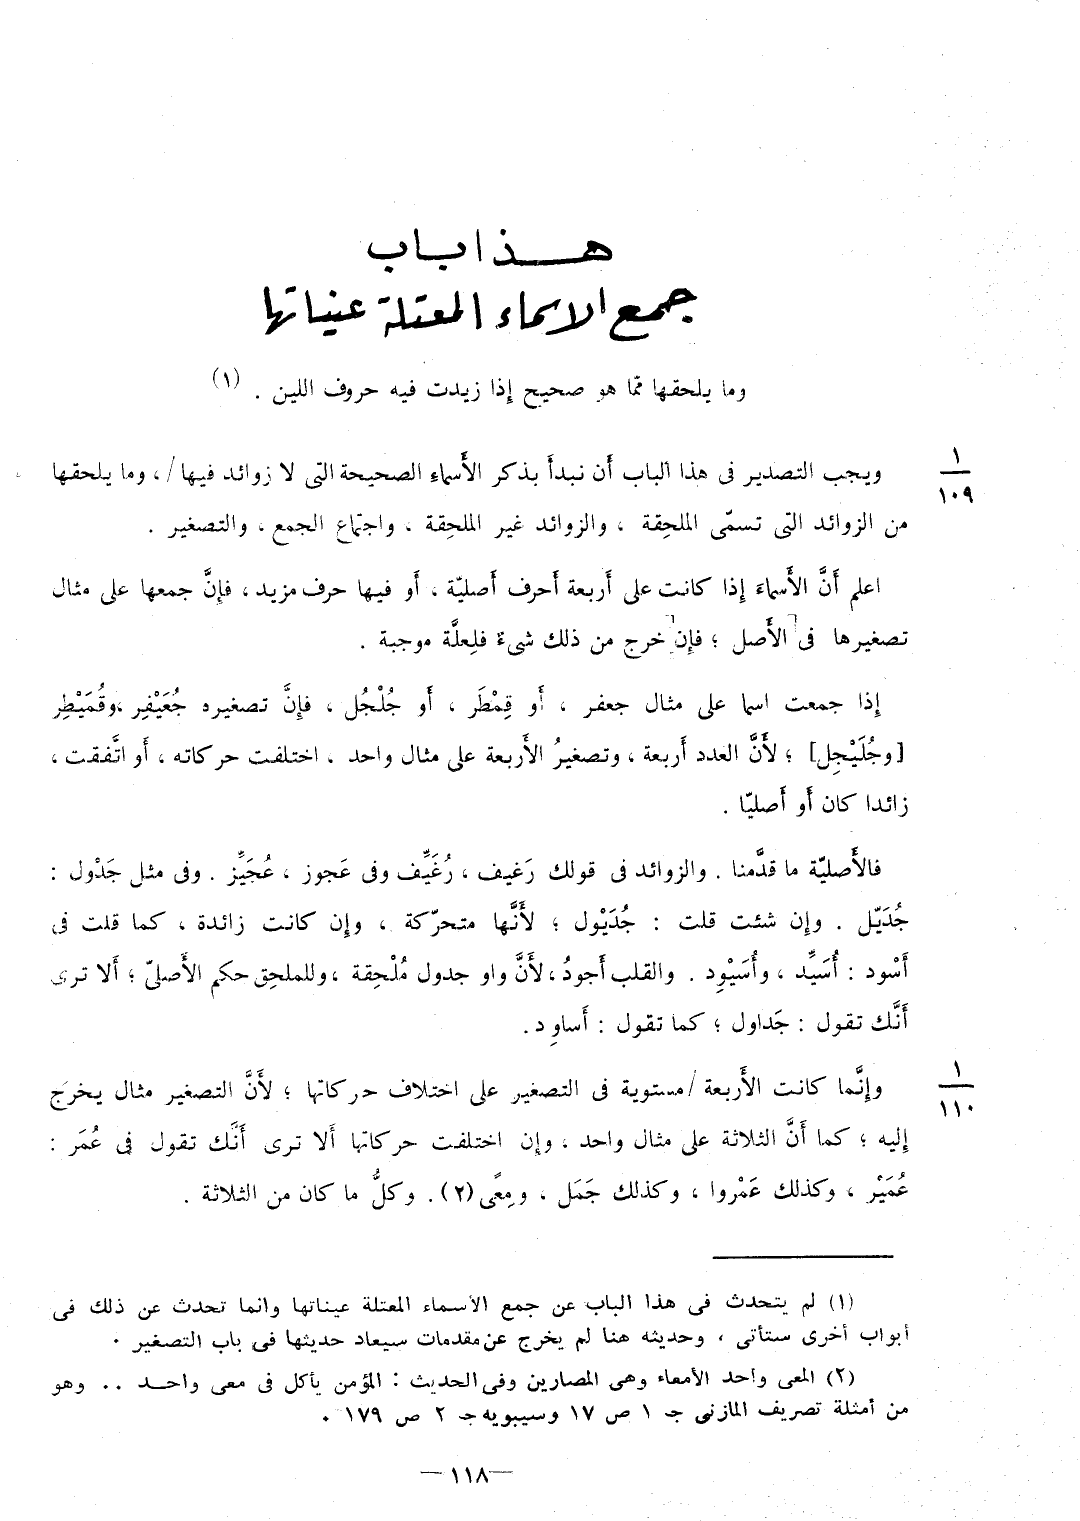 هذا باب
جمع الاسماء المعتلة عيناتها
وما يلحقها ممّا هو صحيح إذا زيدت فيه حروف اللين . (١)
١
١٠٩
ويجب التصدير فى هذا الباب أَن نبدأَ بذكر الأَسماءِ الصحيحة التى لا زوائد فيها/ ، وما يلحقها
من الزوائد التى تسمّى الملحِقة ، والزوائد غير الملحِقة ، واجتماع الجمع ، والتصغير .
اعلم أَنَّ الأَسماءَ إذا كانت على أَربعة أَحرف أَصليّة ، أَو فيها حرف مزيد ، فإنَّ جمعها على مثال
تصغيرها فى الأَصل ؛ فإن خرج من ذلك شىءٌ فلِعلَّة موجبة .
إذا جمعت اسما على مثال جعفر ، أَو قِمْطَر ، أَو جُلْجُل ، فإنَّ تصغيره جُعَيْفِر ، وقُمَيْطِر
[وجُلَيْجِل] ؛ لأَنَّ العدد أَربعة ، وتصغيرُ الأَربعة على مثال واحد ، اختلفت حركاته ، أَو اتَّفقت ،
زائدا كان أَو أَصليّا .
فالأَصليّة ما قدَّمنا . والزوائد فى قولك رَغيف ، رُغَيِّف وفى عَجوز ، عُجَيِّز . وفى مثل جَدْول :
جُدَيّل . وإن شئت قلت : جُدَيْول ؛ لأَنَّها متحرّكة ، وإن كانت زائدة ، كما قلت فى
أَسْود : أُسَيِّد ، وأُسَيْوِد . والقلب أَجودُ ، لأَنَّ واو جدول مُلْحِقة ، وللملحِق حكم الأَصلىّ ؛ أَلا ترى
أَنَّك تقول : جَداول ؛ كما تقول : أَساوِد .
١
١١٠
وإنَّما كانت الأَربعة /مستوية فى التصغير على اختلاف حركاتها ؛ لأَنَّ التصغير مثال يخرَج
إليه ؛ كما أَنَّ الثلاثة على مثال واحد ، وإن اختلفت حركاتها أَلا ترى أَنَّك تقول فى عُمَر :
عُمَيْر ، وكذلك عَمْروا ، وكذلك جَمَل ، ومِعًى (٢) . وكلُّ ما كان من الثلاثة .
(١) لم يتحدث فى هذا الباب عن جمع الأسماء المعتلة عيناتها وانما تحدث عن ذلك فى
أبواب أخرى ستأتى ، وحديثه هنا لم يخرج عن مقدمات سيعاد حديثها فى باب التصغير .
(٢) المعى واحد الأمعاء وهى المصارين وفى الحديث : المؤمن يأكل فى معى واحد .. وهو
من أمثلة تصريف المازنى ج ١ ص ١٧ وسيبويه ج ٢ ص ١٧٩ .
— ١١٨ —